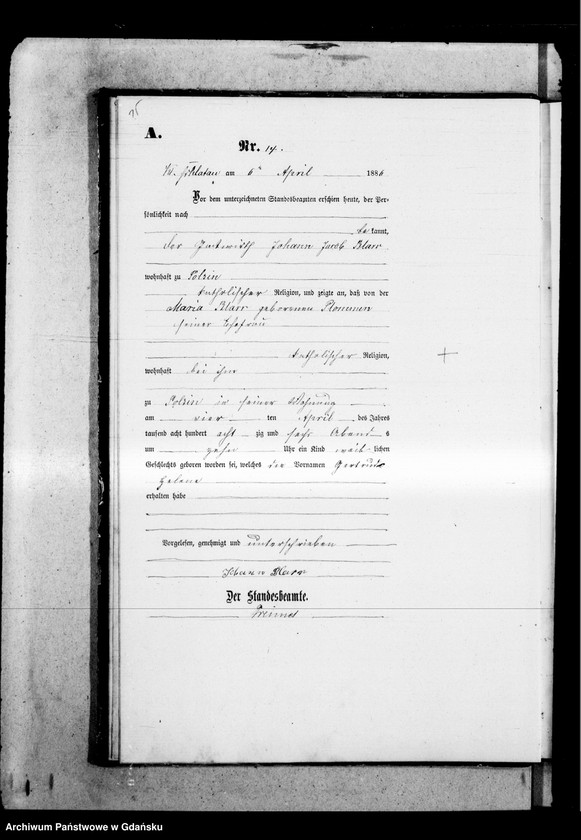 A.
Nr. 14.
am 6ten April 1886
Vor dem unterzeichneten Standesbeamten erschien heute, der Per-
sönlichkeit nach
be kannt,
der Johann Jacob Blarr
wohnhaft zu Polzin
katholischer Religion, und zeigte an, daß von der
Maria Blarr geborenen
seiner Ehefrau
katholischer Religion,
wohnhaft bei ihm
zu Polzin in seiner Wohnung
am vier ten April des Jahres
tausend acht hundert acht zig und sechs Abend s
um zehn Uhr ein Kind weib lichen
Geschlechts geboren worden sei, welches die Vornamen Gertrude
Helene
erhalten habe
Vorgelesen, genehmigt und unterschrieben
Johann Blarr
Der Standesbeamte.
Archiwum Państwowe w Gdańsku